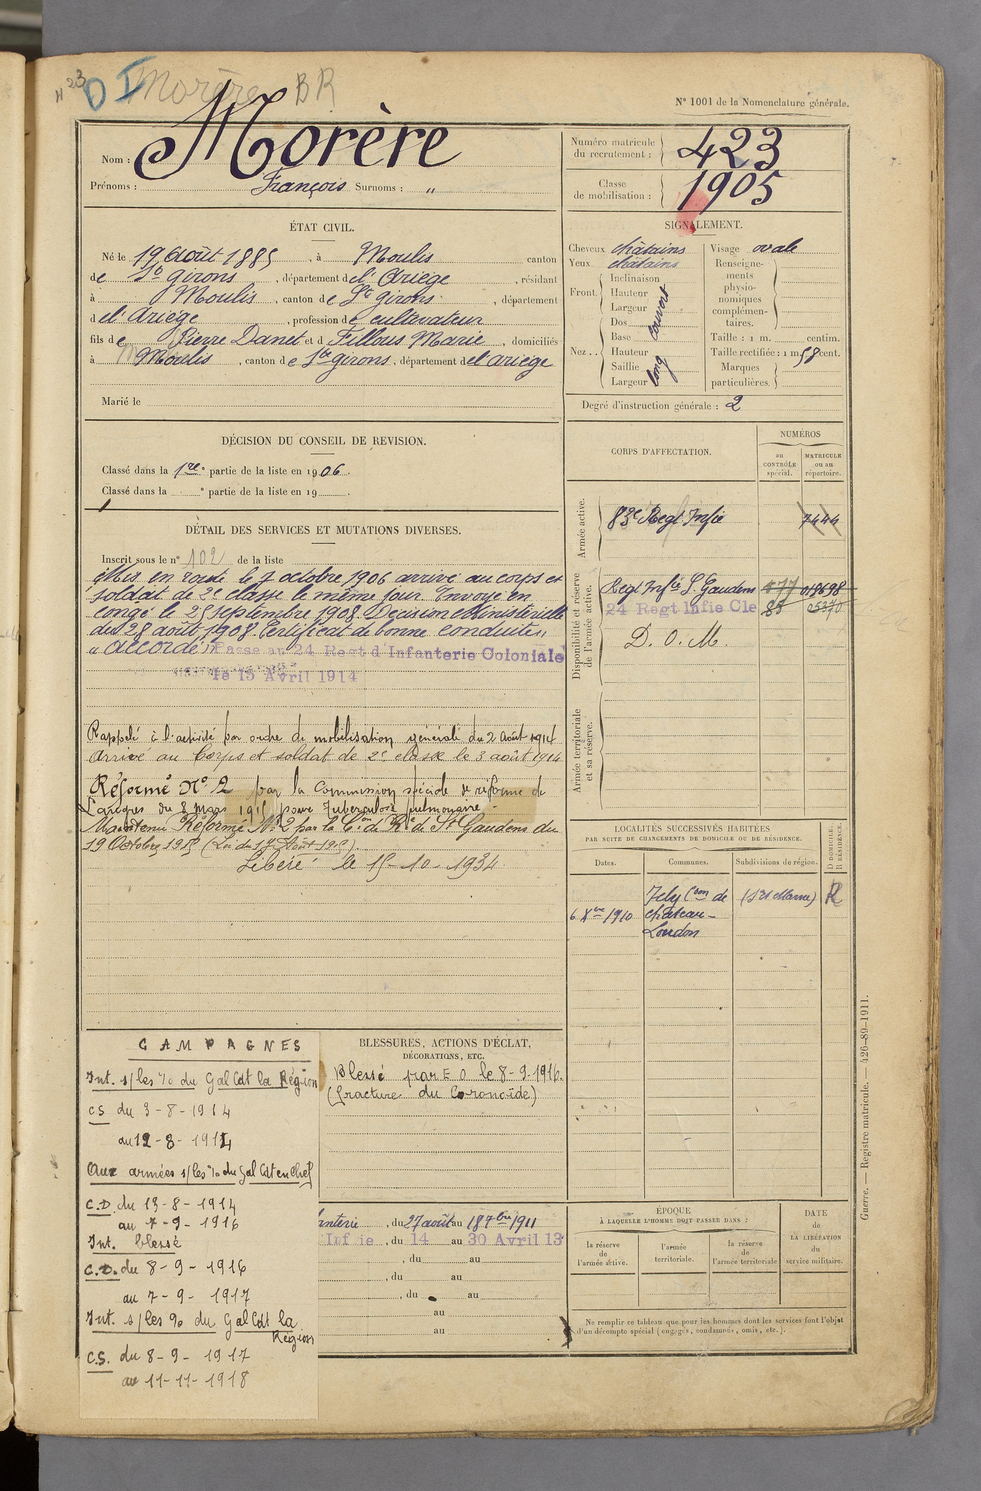 N° 23
D I Morère BR
N° 1001 de la Nomenclature générale.
Nom : Morère
Prénoms : François Surnoms : "
Numéro matricule du recrutement : 423
Classe de mobilisation : 1905
ÉTAT CIVIL.
Né le 19 Août 1885, à Moulis canton
de St girons, département de l'Ariège, résidant
à Moulis, canton de St girons, département
de l'Ariège, profession de cultivateur
fils de Pierre Danet et d Fillous Marie, domiciliés
à Moulis, canton de St girons, département de l'ariège
Marié le
SIGNALEMENT.
Cheveux châtains
Yeux châtains
Front. Inclinaison
Hauteur
Largeur
couvert
Nez .. Dos
Base
Hauteur
Saillie
Largeur
long
Visage ovale
Renseignements physionomiques complémentaires.
Taille : 1 m. centim.
Taille rectifiée : 1 m 58 cent.
Marques particulières.
Degré d'instruction générale : 2
DÉCISION DU CONSEIL DE REVISION.
Classé dans la 1re partie de la liste en 1906.
Classé dans la ° partie de la liste en 19
DÉTAIL DES SERVICES ET MUTATIONS DIVERSES.
Inscrit sous le n° 102 de la liste
Mis en route le 7 octobre 1906 arrivé au corps et
soldat de 2e classe le même jour. Envoyé en
congé le 25 septembre 1908. Décision Ministérielle
du 28 août 1908. Certificat de bonne conduite
"accordé"
Passe au 24 Regt d Infanterie Coloniale
le 15 Avril 1914
Rappelé à l'activité par ordre de mobilisation générale du 2 Août 1914
Arrivé au Corps et soldat de 2e classe le 3 août 1914
Réformé N° 2 par la Commission spéciale de réforme de
Langres du 8 mars 1915 pour Tuberculose pulmonaire.
Maintenu Réformé N° 2 par la Con de Re de St Gaudens du
19 Octobre 1915 (Loi du 17 Août 1915)
Libéré le 15-10-1934
CORPS D'AFFECTATION.
NUMÉROS
au CONTRÔLE spécial.
MATRICULE ou au répertoire.
Armée active.
83e Regt Infie 7444
Disponibilité et réserve de l'armée active.
Regt Infie St. Gaudens 577 019698
24 Regt Infie Cle 85
D. O. M.
Armée territoriale et sa réserve.
LOCALITÉS SUCCESSIVES HABITÉES
PAR SUITE DE CHANGEMENTS DE DOMICILE OU DE RÉSIDENCE.
Dates. Communes. Subdivisions de région.
D DOMICILE. R RÉSIDENCE.
6 Xbre 1910 Con de Château-Landon (St Marne) R
CAMPAGNES
Int. s/les % du Gal Cdt la Région
CS du 3-8-1914
au 12-8-1914
Aux armées s/les % du Gal Cdt en Chef
C.D. du 13-8-1914
au 7-9-1916
Int. blessé
C.D. du 8-9-1916
au 7-9-1917
Int. s/les % du Gal Cdt la Région
C.S. du 8-9-1917
au 11-11-1918
BLESSURES, ACTIONS D'ÉCLAT,
DÉCORATIONS, ETC.
Blessé par E O le 8-9-1916.
(fracture du Coronoïde)
anterie, du 27 août au 18 7bre 1911
Infie, du 14 au 30 Avril 13
, du au
, du au
, du au
au
au
ÉPOQUE
À LAQUELLE L'HOMME DOIT PASSER DANS :
la réserve de l'armée active.
l'armée territoriale.
la réserve de l'armée territoriale
DATE de LA LIBÉRATION du service militaire.
Ne remplir ce tableau que pour les hommes dont les services font l'objet
d'un décompte spécial (engagés, condamnés, omis, etc.).
Guerre. — Registre matricule. — 426-89-1911.